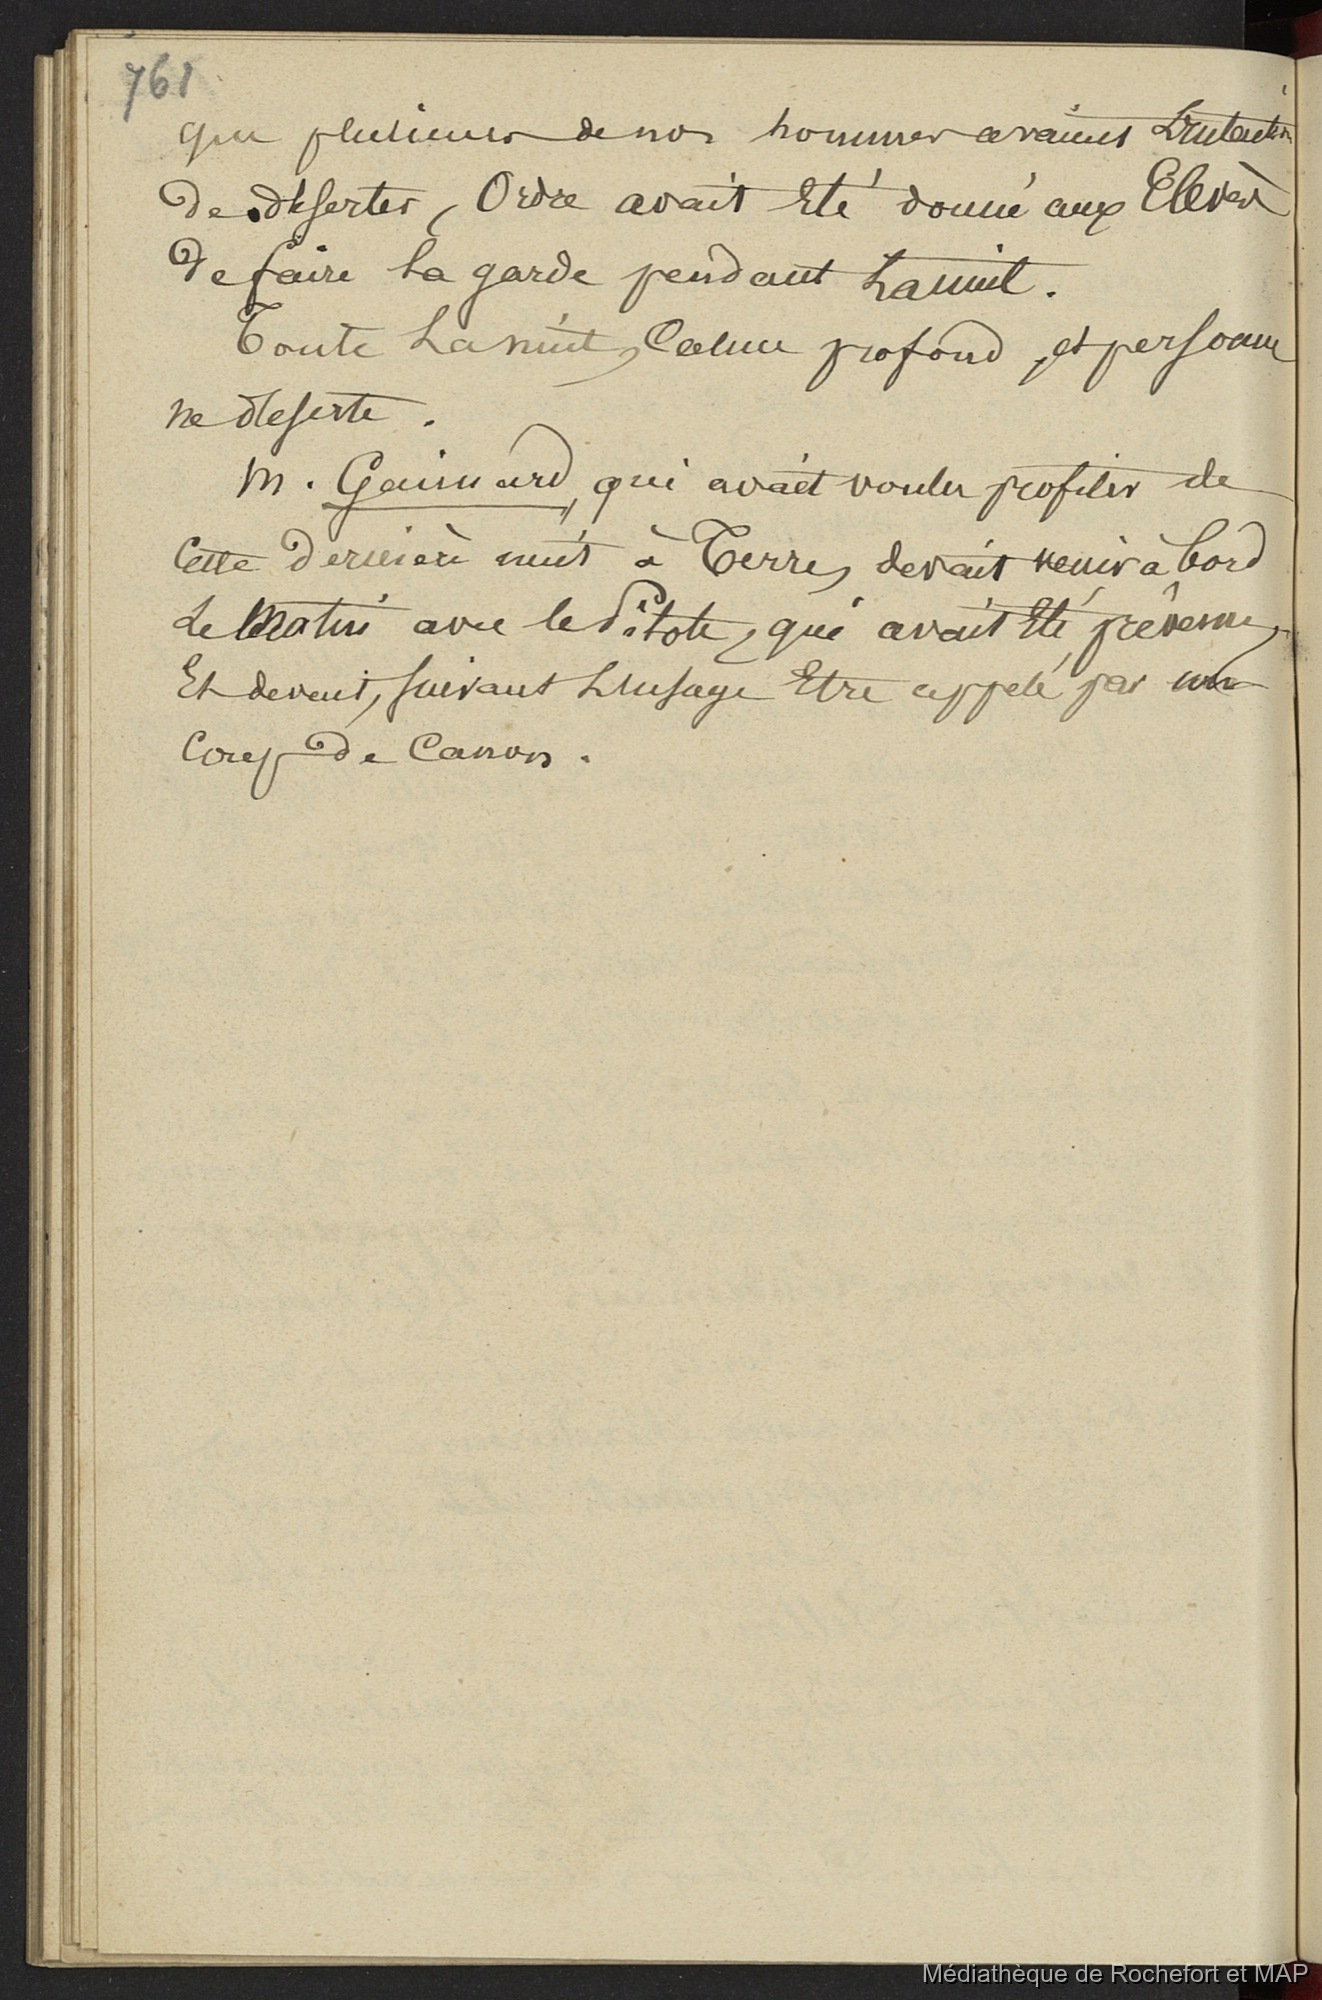 761
que plusieurs de nos hommes avaient L'intention
De déserter, Ordre avait Eté donné aux Elèves
De faire La garde pendant La nuit.
Toute La nuit, Calme profond, et personne
ne déserte.
M. Gaimard, qui avait voulu profiter de
Cette Dernière nuit à Terre, devait venir à bord
Le Matin avec le Pilote, qui avait Eté prévenu,
Et devait, suivant L'usage Etre appelé par un
Coup De Canon.
Médiathèque de Rochefort et MAP